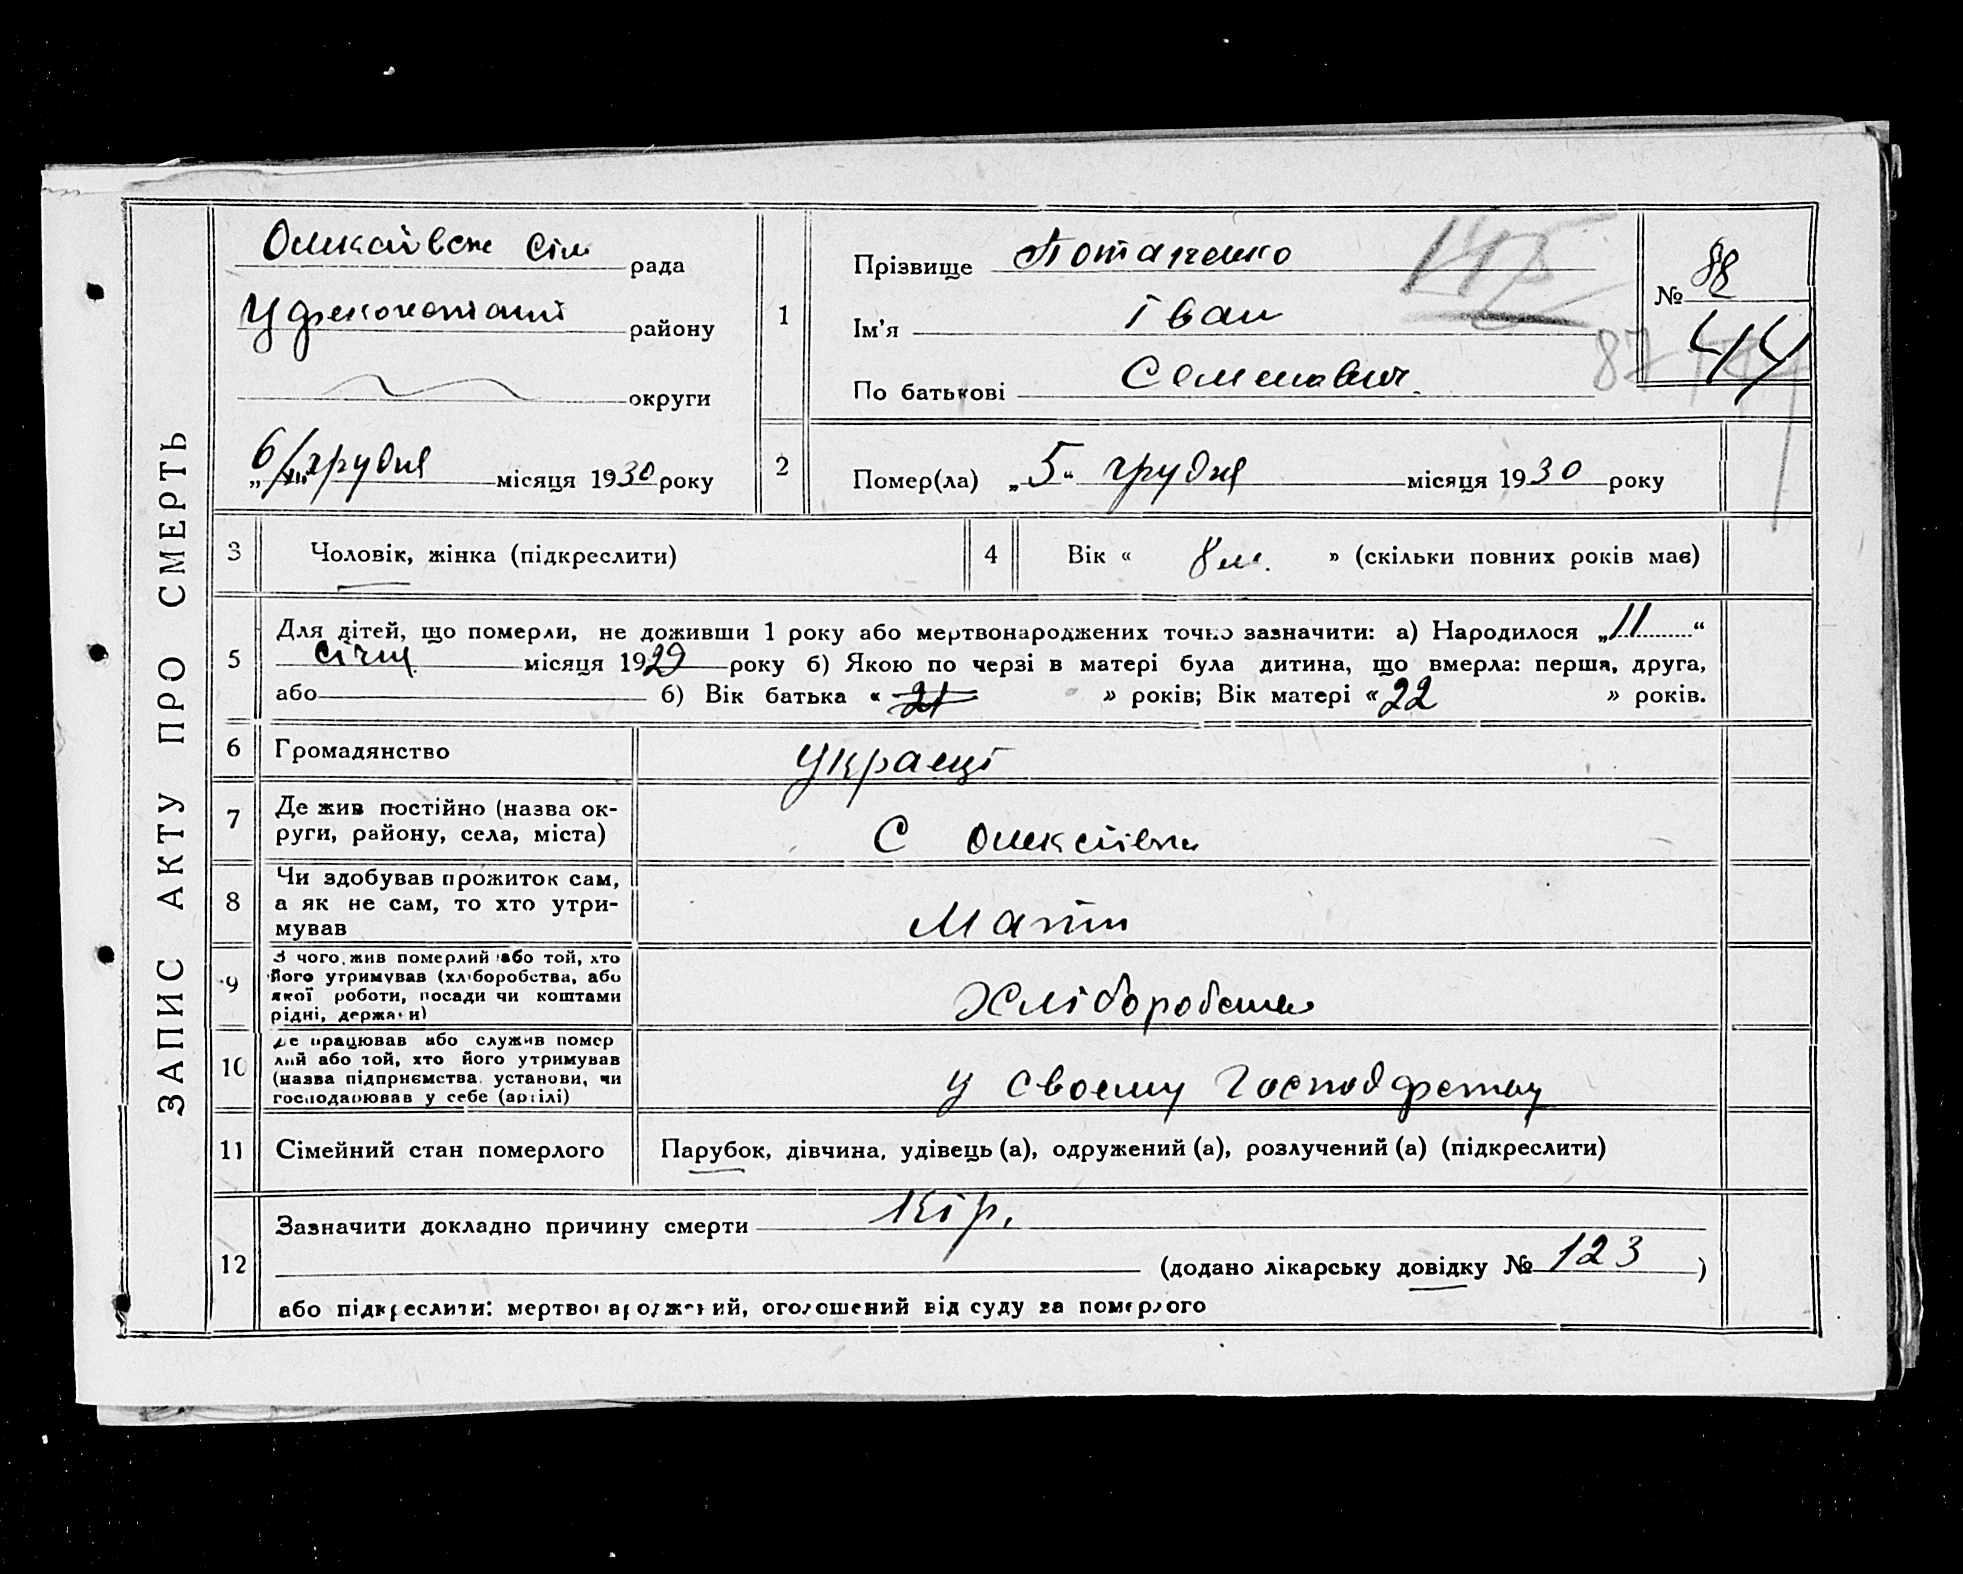 ЗАПИС АКТУ ПРО СМЕРТЬ
Олексіївська Сіль рада
району
округи
6/ грудня місяця 1930 року
1
Прізвище Потапенко
Ім'я Іван
По батькові Семенович
145
№ 88
44
87
2
Помер(ла) „5“ грудня місяця 1930 року
3 Чоловік, жінка (підкреслити)
4 Вік « 8 м. » (скільки повних років має)
5 Для дітей, що померли, не доживши 1 року або мертвонароджених точно зазначити: а) Народилося „11“
січня місяця 1929 року б) Якою по черзі в матері була дитина, що вмерла: перша, друга,
або б) Вік батька « 21 » років; Вік матері « 22 » років.
6 Громадянство Україці
7 Де жив постійно (назва ок-
руги, району, села, міста) С Олексіївка
8 Чи здобував прожиток сам,
а як не сам, то хто утри-
мував Мати
9 З чого жив померлий або той, хто
його утримував (хліборобства, або
якої роботи, посади чи коштами
рідні, держави) Хліборобства
10 Де працював або служив помер
лий або той, хто його утримував
(назва підприємства, установи, чи
господарював у себе (артілі) у своєму
11 Сімейний стан померлого Парубок, дівчина, удівець (а), одружений (а), розлучений (а) (підкреслити)
12 Зазначити докладно причину смерти Кір.
(додано лікарську довідку № 123 )
або підкреслити: мертвонароджений, оголошений від суду за померлого